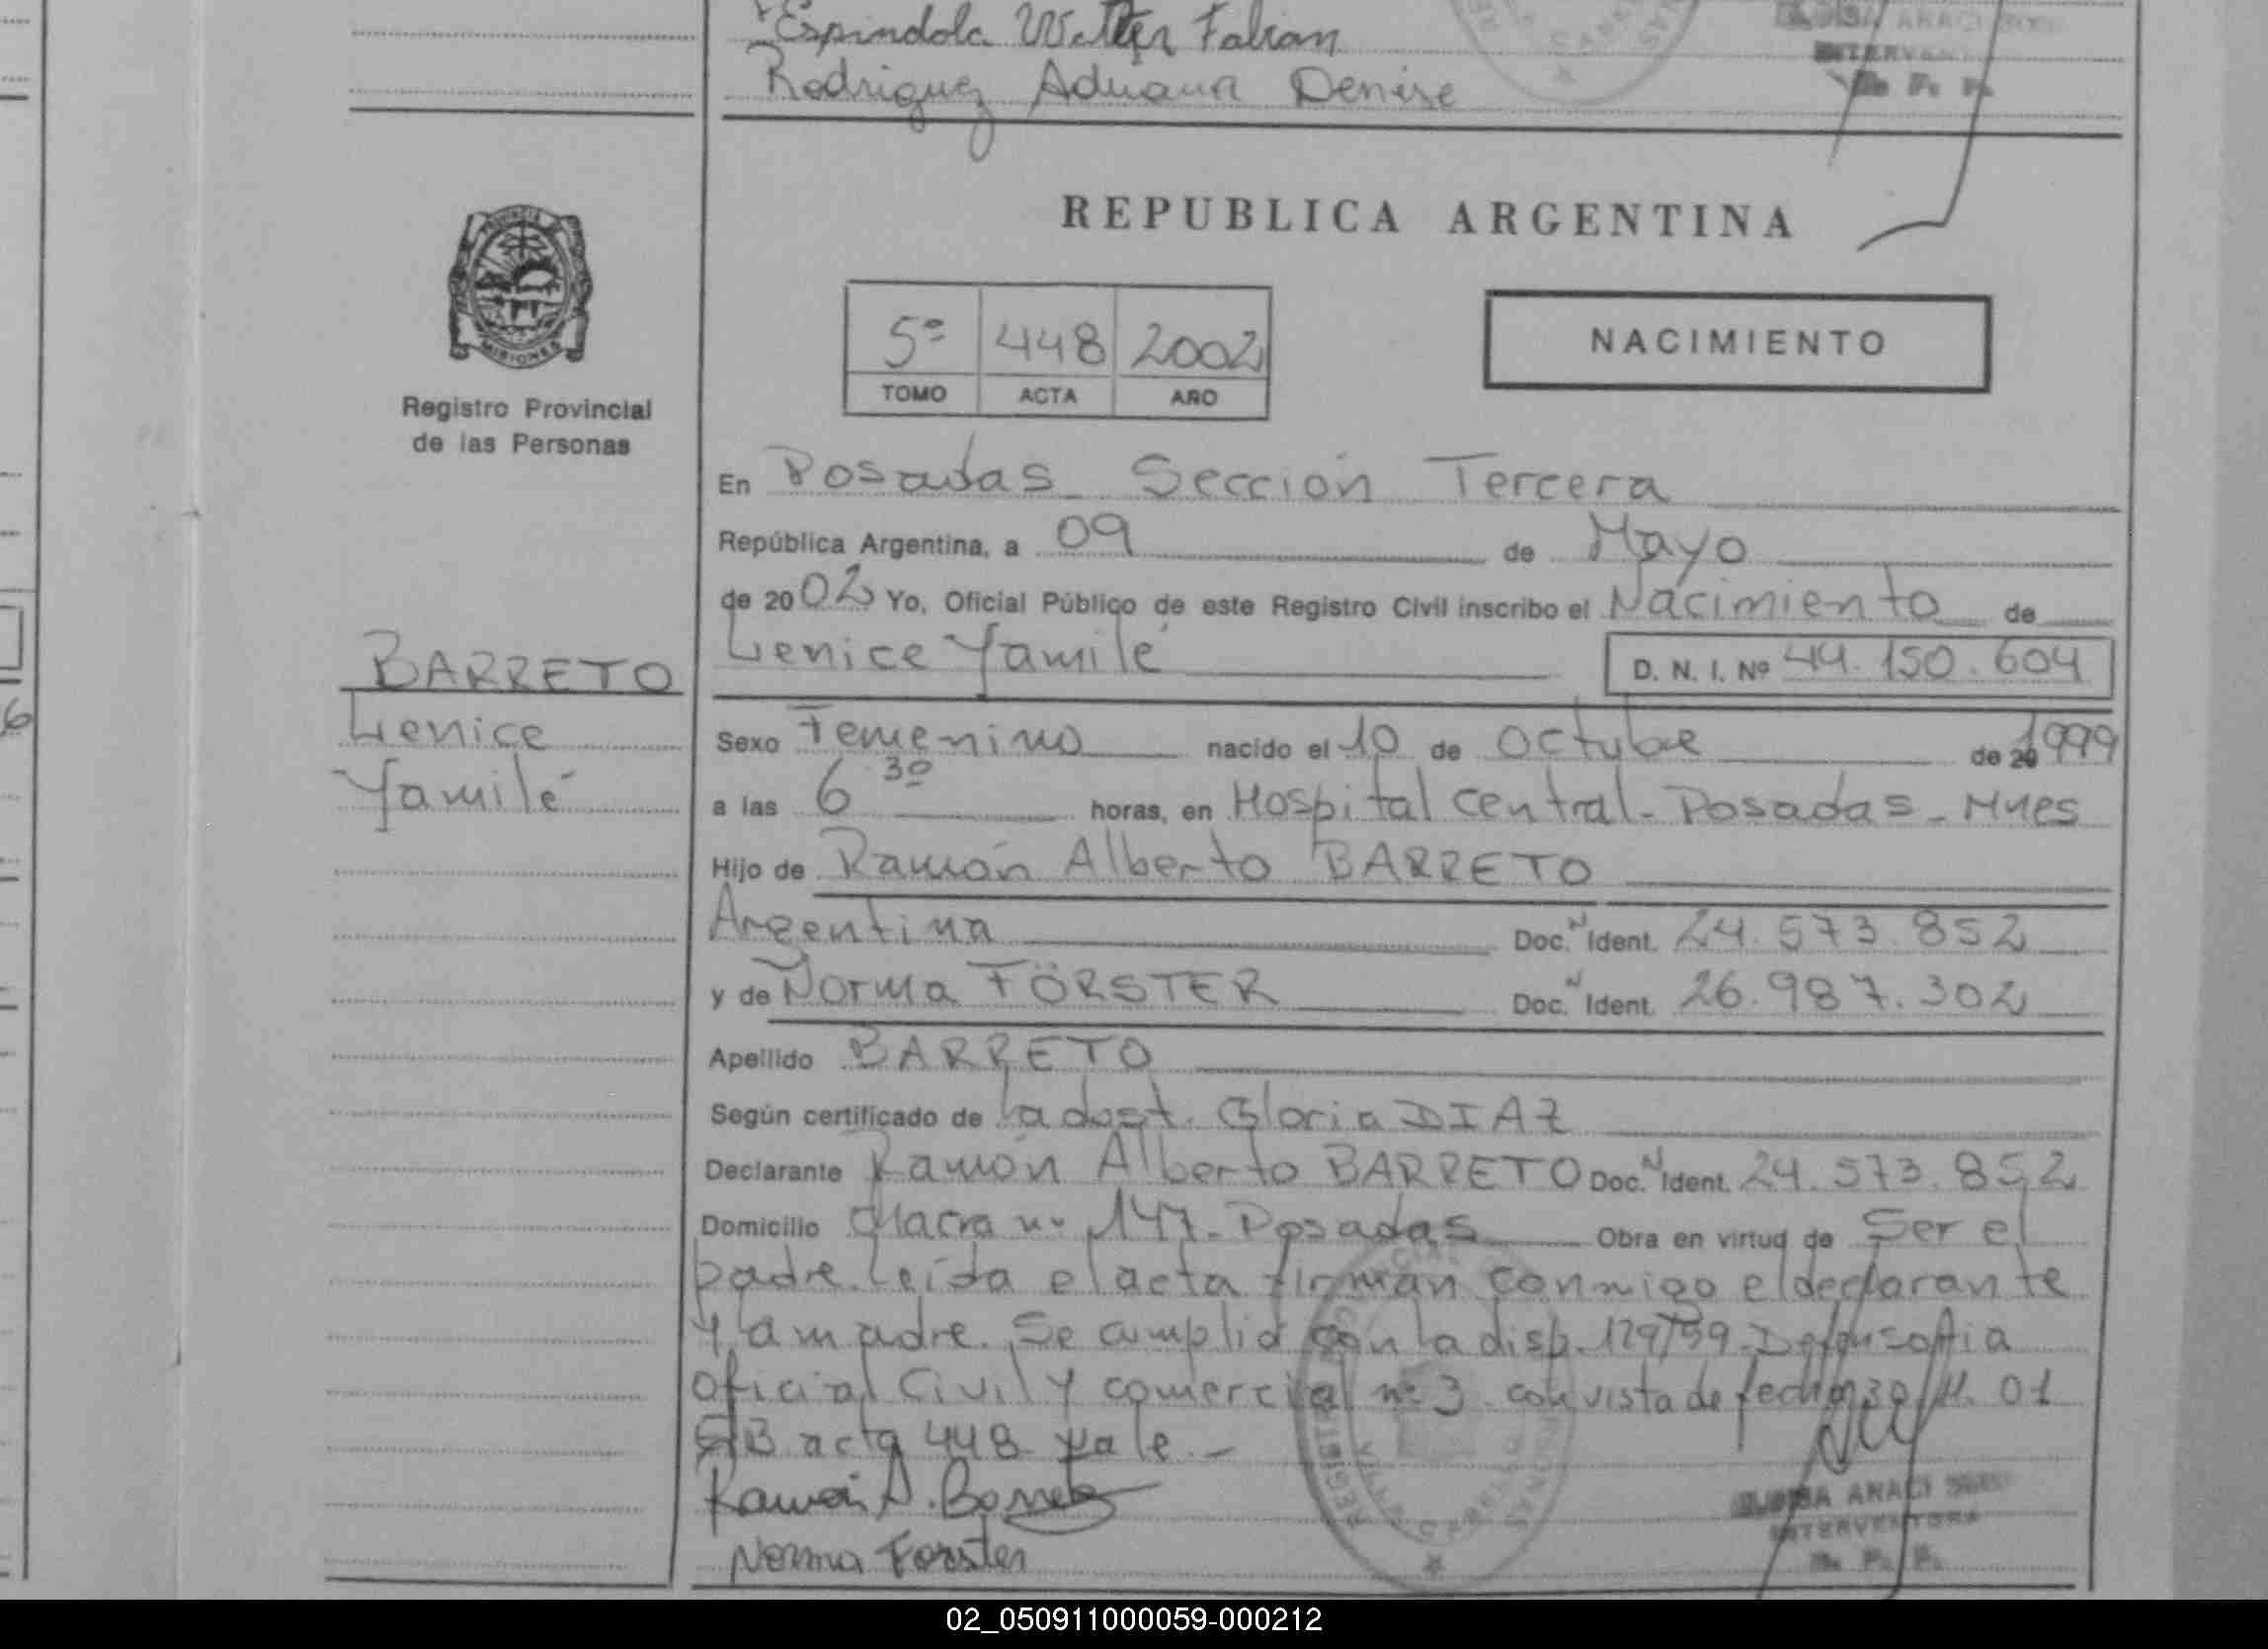 Espindola Walter Fabian
Rodriguez Adriana Denise
REPUBLICA ARGENTINA
MISIONES
Registro Provincial
de las Personas
5º 448 2002
TOMO ACTA AÑO
NACIMIENTO
En Posadas Sección Tercera
República Argentina, a 09 de Mayo
de 2002 Yo, Oficial Público de este Registro Civil inscribo el Nacimiento de
BARRETO
Lenice
Yamilé
Lenice Yamilé D. N. I. Nº 44.150.604
Sexo Femenino nacido el 10 de Octubre de 20 1999
a las 6 30 horas, en Hospital Central - Posadas - Mnes
Hijo de Ramón Alberto BARRETO
Argentina Doc. N Ident. 24.573.852
y de Norma FÖRSTER Doc. N Ident. 26.987.302
Apellido BARRETO
Según certificado de la obst. Gloria DIAZ
Declarante Ramón Alberto BARRETO Doc. N Ident. 24.573.852
Domicilio Chacra nº 147 - Posadas Obra en virtud de Ser el
padre. Leída el acta firman conmigo el declarante
y la madre. Se cumplió con la disp. 129/99 - Defensoría
Oficial Civil y comercial nº 3 con vista de fecha 30/11.01
acta 448 vale. -
Ramón A. Barreto
Norma Forster
ANACI
INTERVENTORA
R. P. P.
02_050911000059-000212